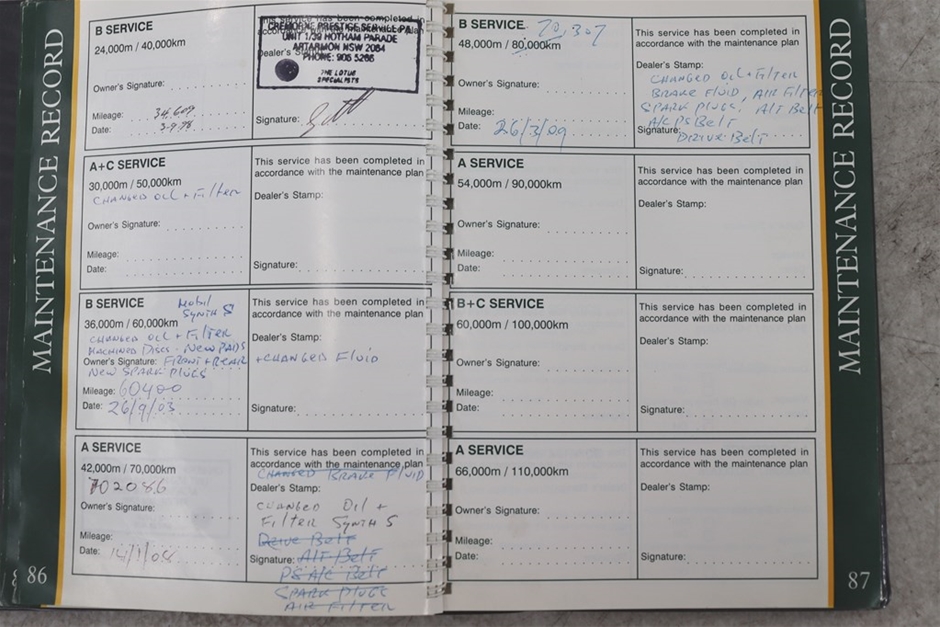 MAINTENANCE RECORD
B SERVICE
24,000m / 40,000km
Owner's Signature:
Mileage: 34,609
Date: 3-9-98
This service has been completed in
accordance with the maintenance plan
Dealer's Stamp:
CREMORNE PRESTIGE SERVICE P/L
UNIT 1/39 HOTHAM PARADE
ARTARMON NSW 2064
PHONE: 906 5266
THE LOTUS
SPECIALISTS
Signature:
A+C SERVICE
30,000m / 50,000km
CHANGED OIL + Filter
Owner's Signature:
Mileage:
Date:
This service has been completed in
accordance with the maintenance plan
Dealer's Stamp:
Signature:
B SERVICE
Mobil
SYNTH S
36,000m / 60,000km
CHANGED OIL + FILTER
MACHINED DISCS - NEW PADS
Owner's Signature: FRONT + REAR
NEW SPARK PLUGS
Mileage: 60400
Date: 26/9/03
This service has been completed in
accordance with the maintenance plan
Dealer's Stamp:
+CHANGED FLUID
Signature:
A SERVICE
42,000m / 70,000km
702086
Owner's Signature:
Mileage:
Date:
This service has been completed in
accordance with the maintenance plan
CHANGED BRAKE FLUID
Dealer's Stamp:
CHANGED OIL +
FILTER SYNTH S
DRIVE BELT
Signature: ALT BELT
PS A/C BELT
SPARK PLUGS
AIR FILTER
86
B SERVICE
70,307
48,000m / 80,000km
Owner's Signature:
Mileage:
Date: 26/3/09
This service has been completed in
accordance with the maintenance plan
Dealer's Stamp:
CHANGED OIL + FILTER
BRAKE FLUID, AIR FILTER
SPARK PLUGS, ALT BELT
A/C PS BELT
Signature:
DRIVE BELT
A SERVICE
54,000m / 90,000km
Owner's Signature:
Mileage:
Date:
This service has been completed in
accordance with the maintenance plan
Dealer's Stamp:
Signature:
B+C SERVICE
60,000m / 100,000km
Owner's Signature:
Mileage:
Date:
This service has been completed in
accordance with the maintenance plan
Dealer's Stamp:
Signature:
A SERVICE
66,000m / 110,000km
Owner's Signature:
Mileage:
Date:
This service has been completed in
accordance with the maintenance plan
Dealer's Stamp:
Signature:
87
MAINTENANCE RECORD